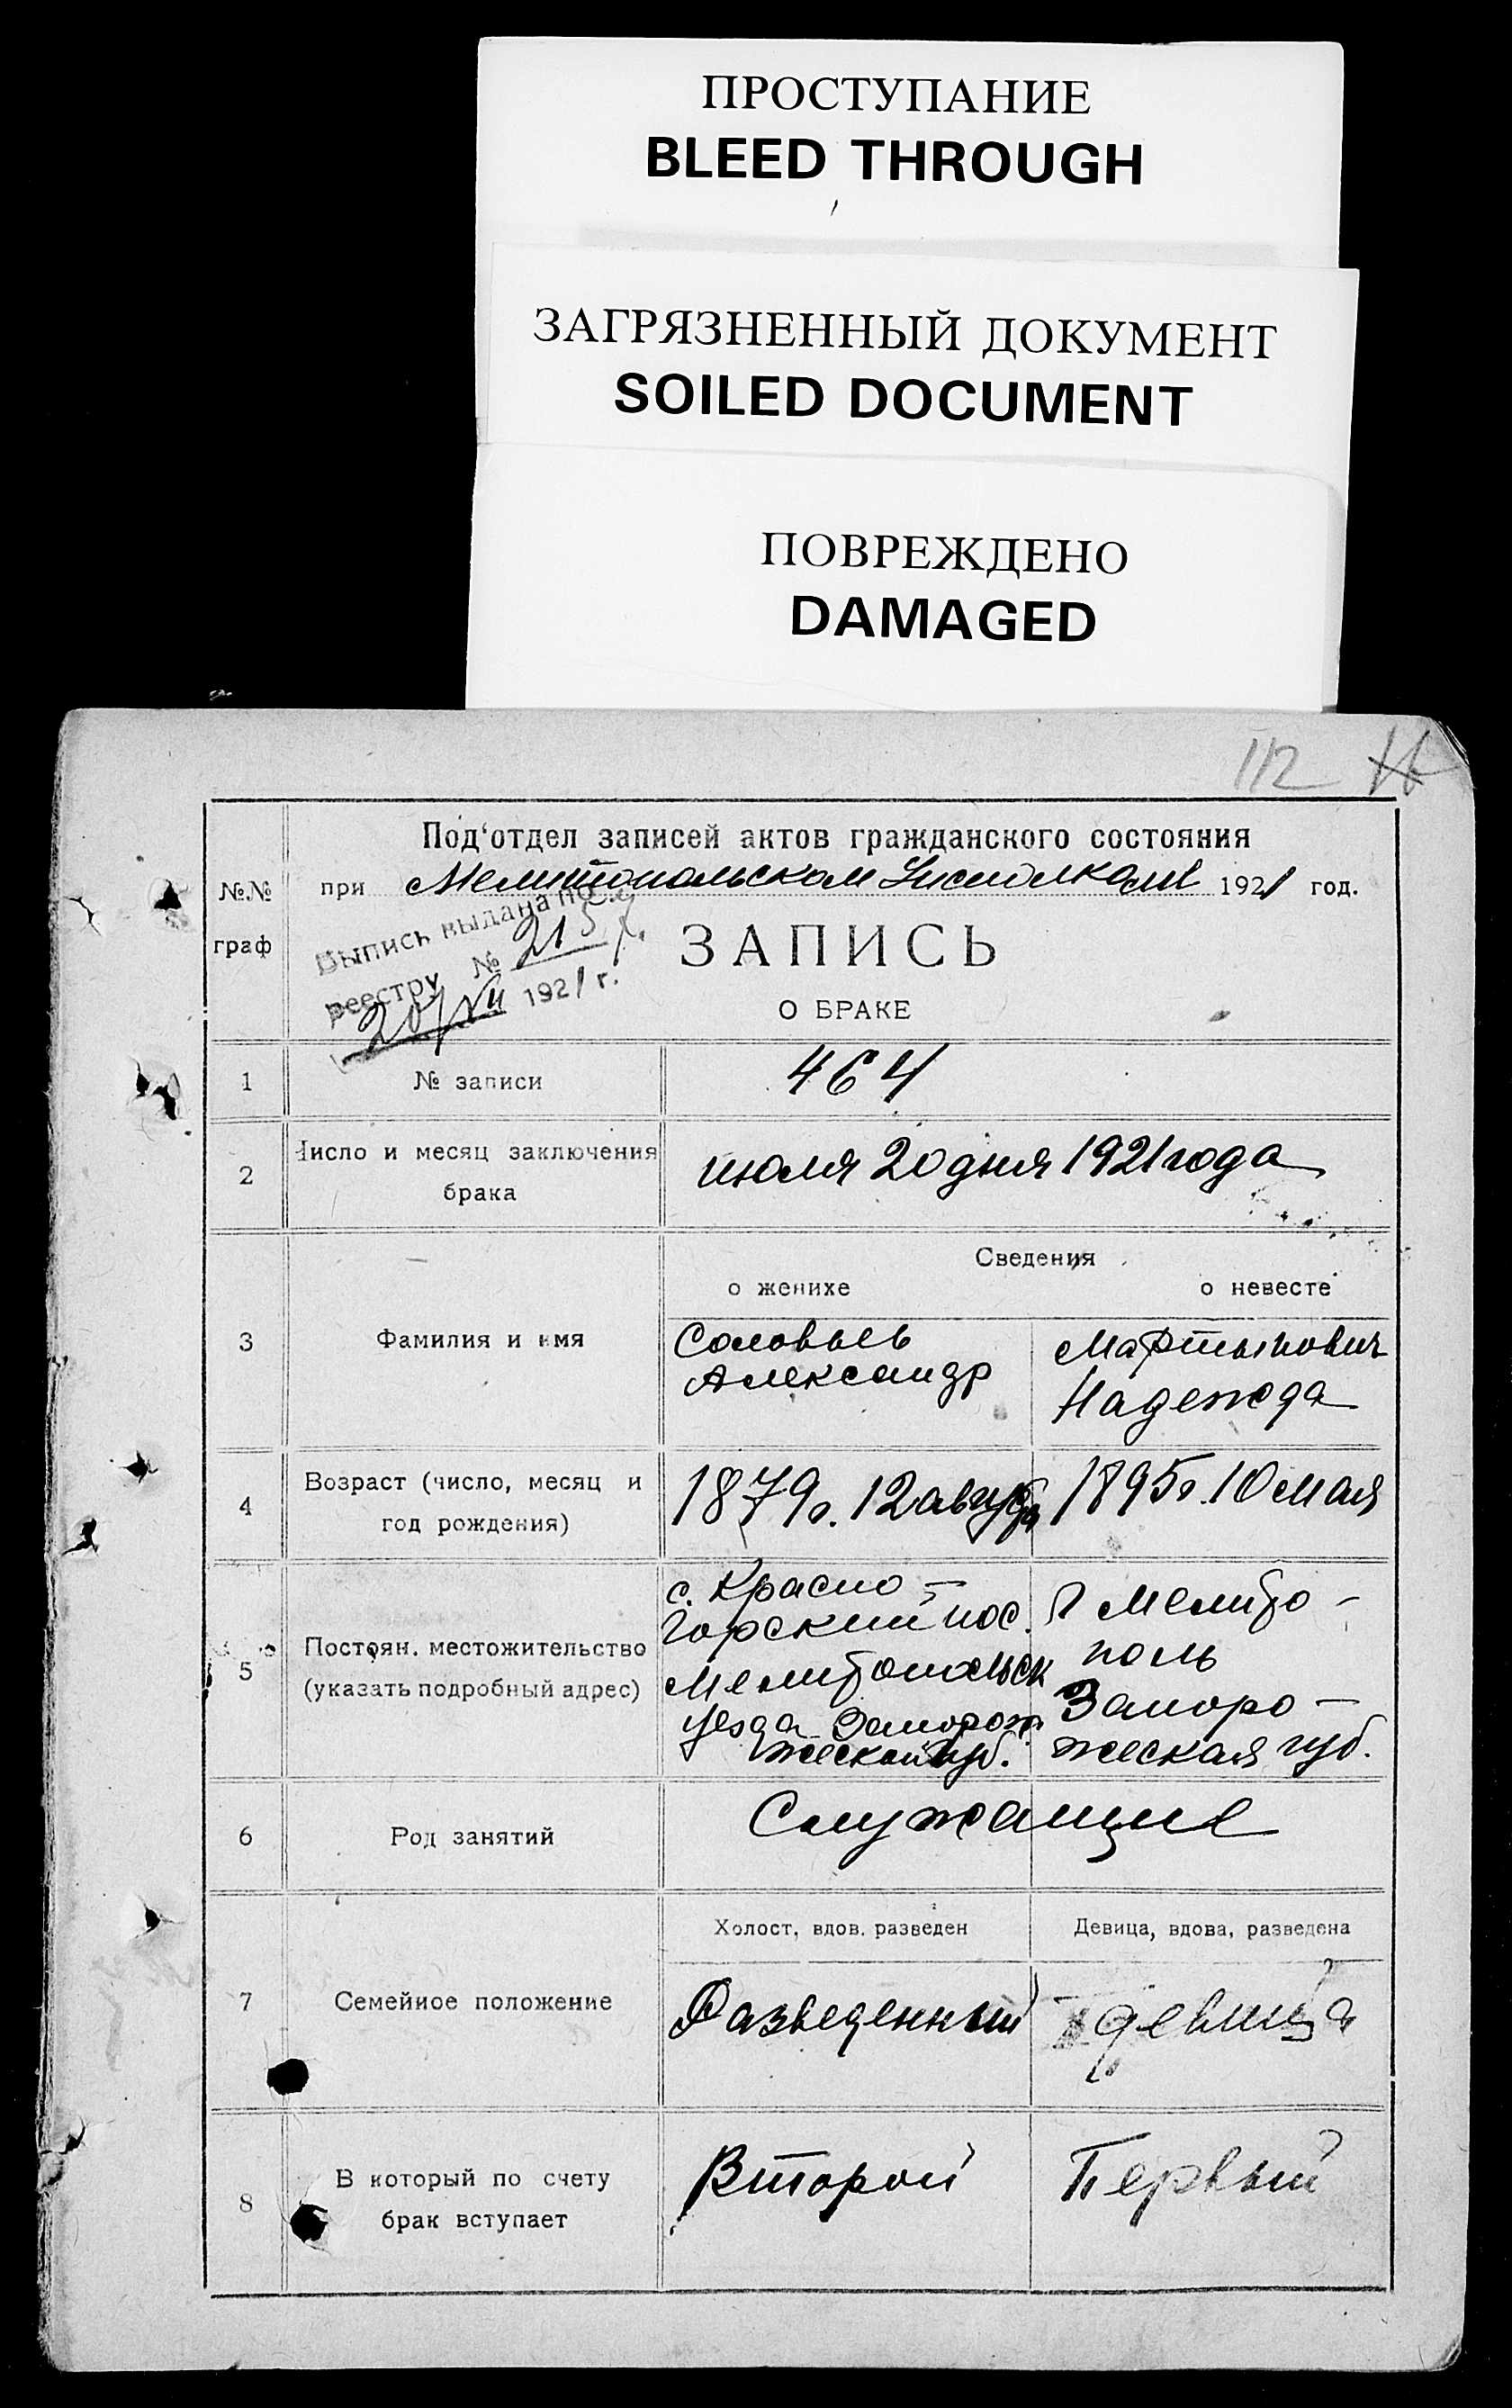 ПРОСТУПАНИЕ
BLEED THROUGH
ЗАГРЯЗНЕННЫЙ ДОКУМЕНТ
SOILED DOCUMENT
ПОВРЕЖДЕНО
DAMAGED
112
№№ граф
Под‘отдел записей актов гражданского состояния
при Мелитопольском 1921 год.
Выпись выдана по
реестру № 215
20/VII 1921 г.
ЗАПИСЬ
О БРАКЕ
1 № записи 464
2 Число и месяц заключения
брака
июля 20 дня 1921 года
Сведения
о женихе о невесте
3 Фамилия и имя
Соловьев
Александр
Мартынович
Надежда
4 Возраст (число, месяц и
год рождения)
1879 г. 12 августа
1895 г. 10 мая
5 Постоян. местожительство
(указать подробный адрес)
с. Красно-
Горский пос.
Мелитопольск
уезда Запорож
жеской губ.
г Мелито-
поль
Запоро-
жеская губ.
6 Род занятий Служащие
7 Семейное положение
Холост, вдов. разведен
Девица, вдова, разведена
Разведенный
девица
8 В который по счету
брак вступает
Второй
Первый